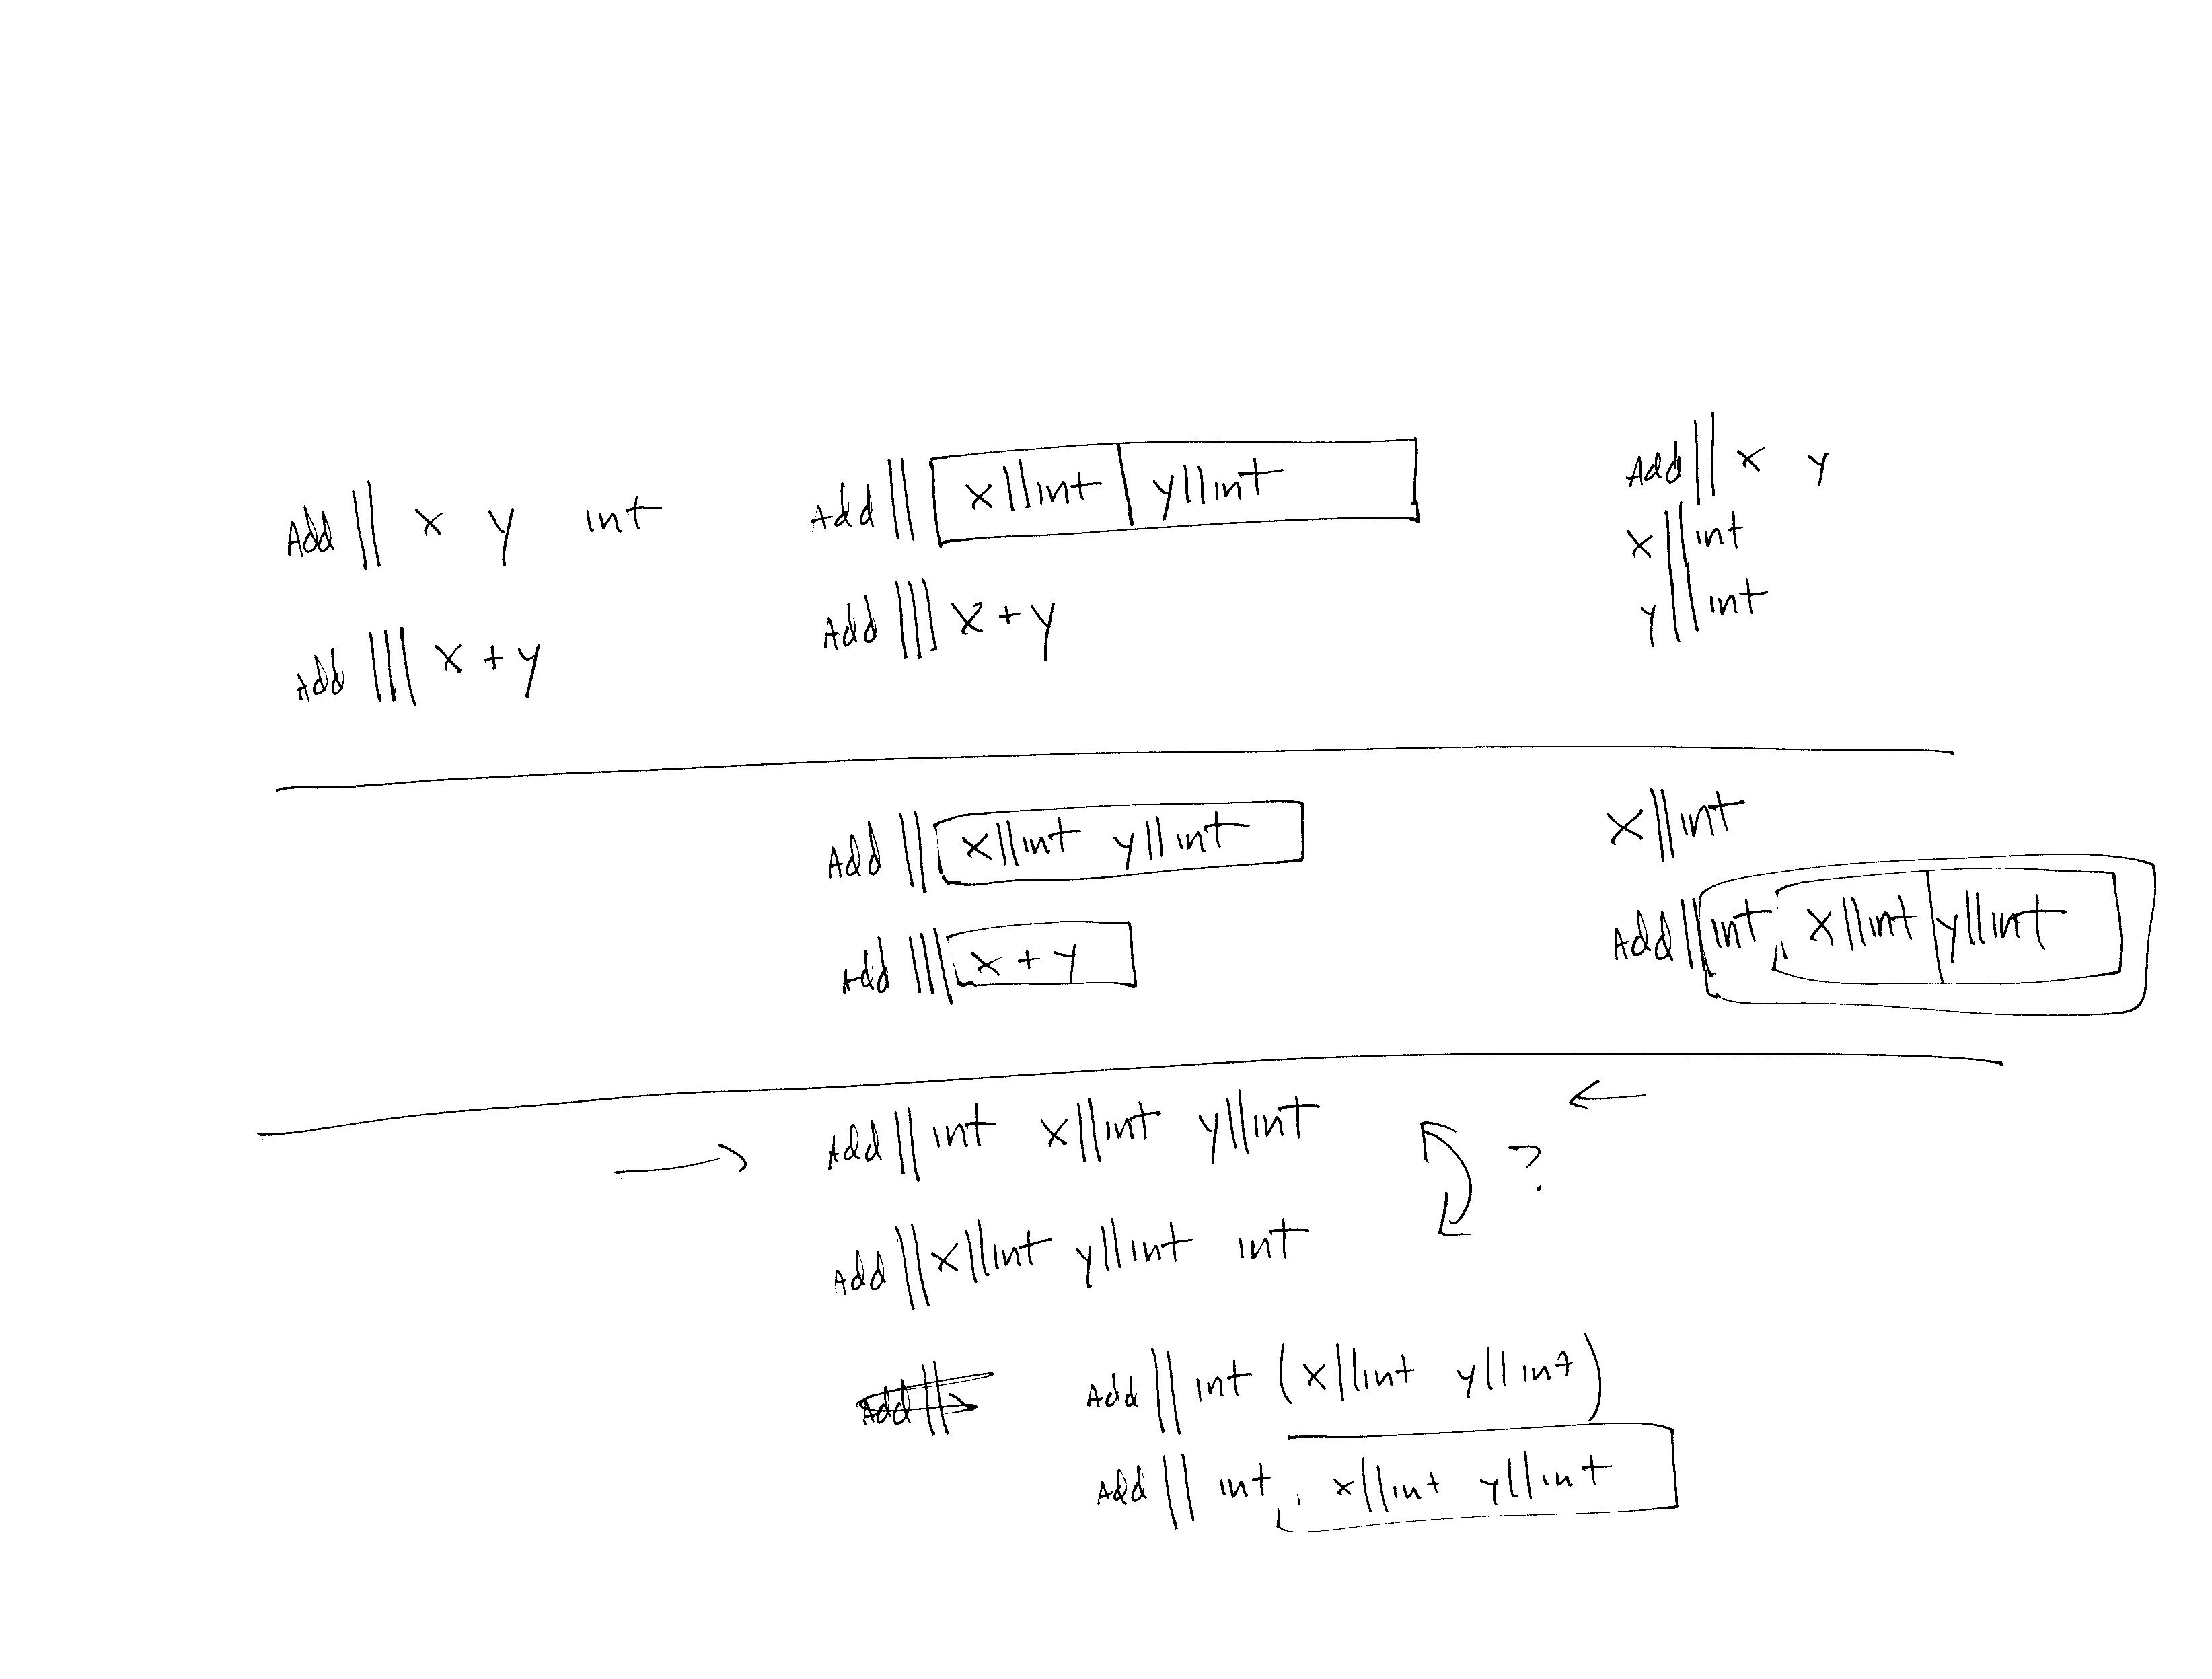 Add || x y int
Add ||| x + y
Add || x || int | y || int
Add ||| x + y
Add || x y
x || int
y || int
Add || x || int y || int
Add ||| x + y
x || int
Add || int . x || int | y || int
→ Add || int x || int y || int ←
Add || x || int y || int int
?
Add || int ( x || int y || int )
Add || int . x || int y || int